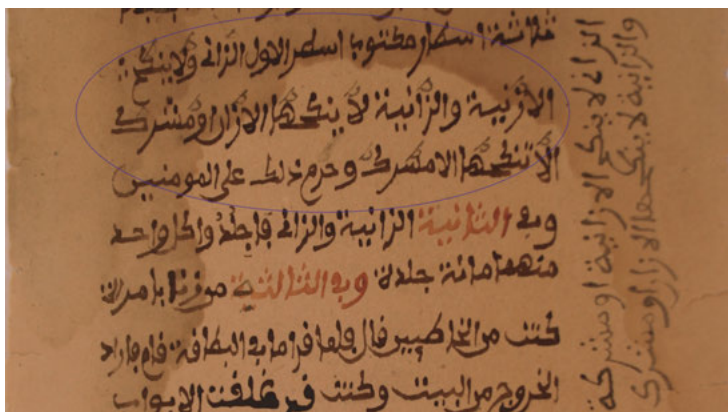 ثلاثة اسطار مكتوبا اسطر الاول الزانى ولا ينكح
الا زنية والزانية لا ينكحها الا زان او مشرك
الا تنكحها الا مشرك وحرم ذلك على المومنين
وفي الثانية الزانية والزانى فاجلدوا كل واحد
منهما مائة جلدة وفي الثالثة من زنا بامراة
كنت من الخاطيين قال فلما قرا ما في البطاقة قام فاراد
الخروج من البيت وكنت قد غلقت الابواب
الزانى لا ينكح الا زانية او مشركة
والزانية لا ينكحها الا زان او مشرك